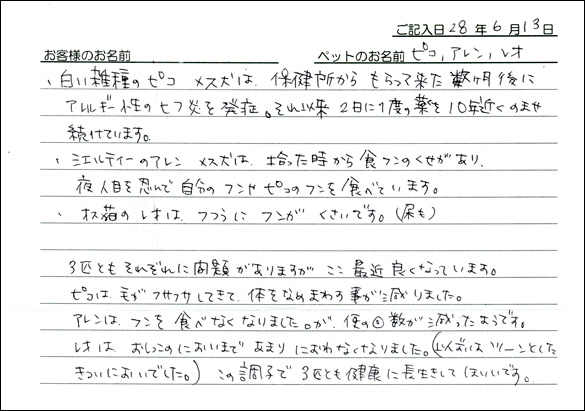 ご記入日 28 年 6 月 13 日
お客様のお名前 ペットのお名前 ピコ, アレン, レオ
・白い雑種のピコ メス犬は、保健所から もらって来た 数ヶ月後に
アレルギー性のヒフ炎を発症。それ以来 2日に1度の薬を10年近くのませ
続けています。
・シェルティーのアレン メス犬は、拾った時から食フンのくせがあり、
夜人目を忍んで自分のフンやピコのフンを食べています。
・オス猫のレオは、ふつうにフンが くさいです。(尿も)
3匹ともそれぞれに問題がありますが ここ最近良くなっています。
ピコは、毛がフサフサしてきて、体をなめまわす事が減りました。
アレンは、フンを食べなくなりました。が、便の回数が減ったようです。
レオは おしっこのにおいまで あまりにおわなくなりました。(以前は ツーンとした
きついにおいでした。) この調子で 3匹とも健康に長生きして ほしいです。